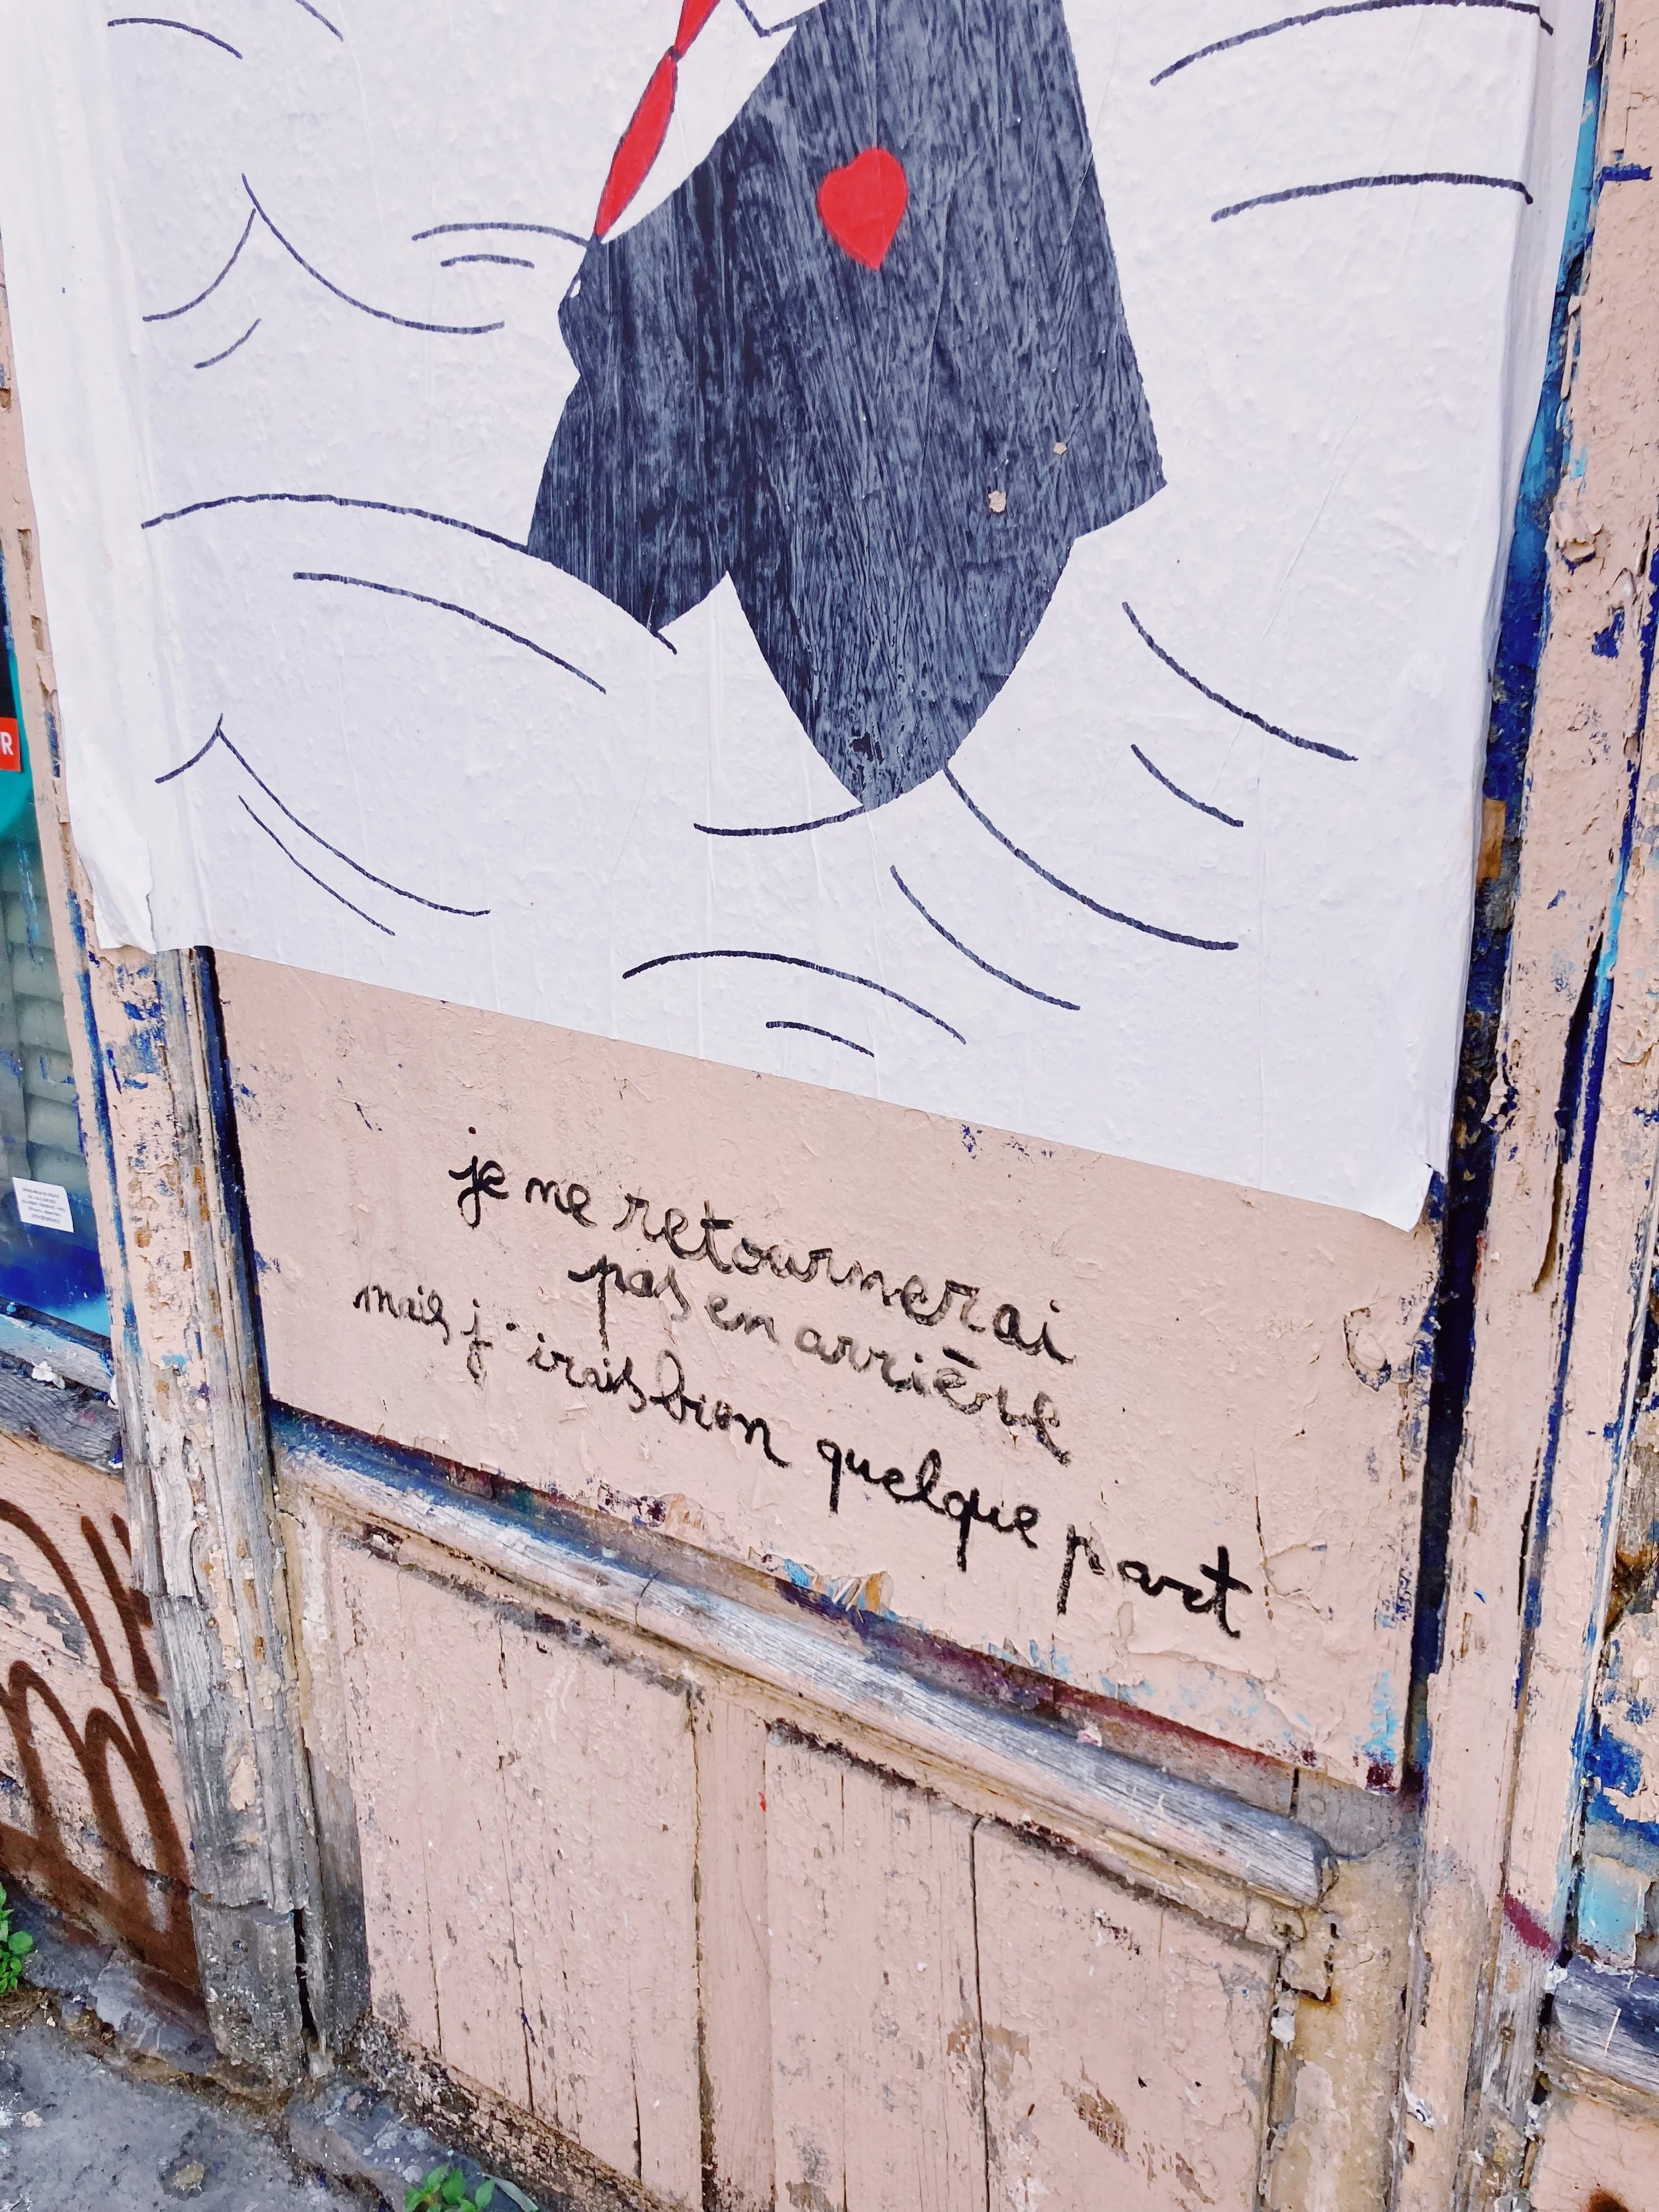 je ne retournerai
pas en arrière
mais j'irais bien quelque part
R